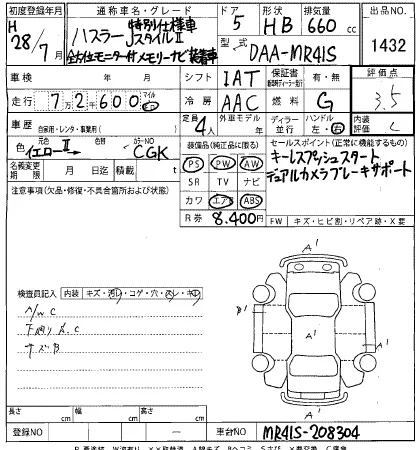 初度登録年月 通称車名・グレード ドア 形状 排気量 出品NO.
H 28/7月 ハスラー 特別仕様車 JスタイルⅡ 5 HB 660 cc 1432
全方位モニター付メモリーナビ装着車 型式 DAA-MR41S
車検 年 月 シフト IAT 保証書 有・無 評価点
走行 7 2 6 0 0 マイル 冷房 AAC 燃料 G 3.5
車歴 自家用・レンタ・事業用( ) 定員 4人 外車モデル 年 ディーラー 並行 ハンドル 左・右 内装評価 C
色 元色 イエローⅡ 色替 カラーNO CGK 装備品(純正品に限る) セールスポイント(正常に機能するもの)
名義変更期限 月 日 積載 t PS PW AW キーレスプッシュスタート
注意事項(欠品・修復・不具合箇所および状態) SR TV ナビ デュアルカメラブレーキサポート
カワ エアB ABS
R券 8,400円 FW キズ・ヒビ割・リペア跡・X要
A'
検査員記入 内装 キズ・汚レ・コゲ・穴・スレ・キレ
A/W C
下廻りS.C
キズB
A' A'
A'
長さ cm 幅 cm 高さ cm
登録NO 車台NO MR41S-208304